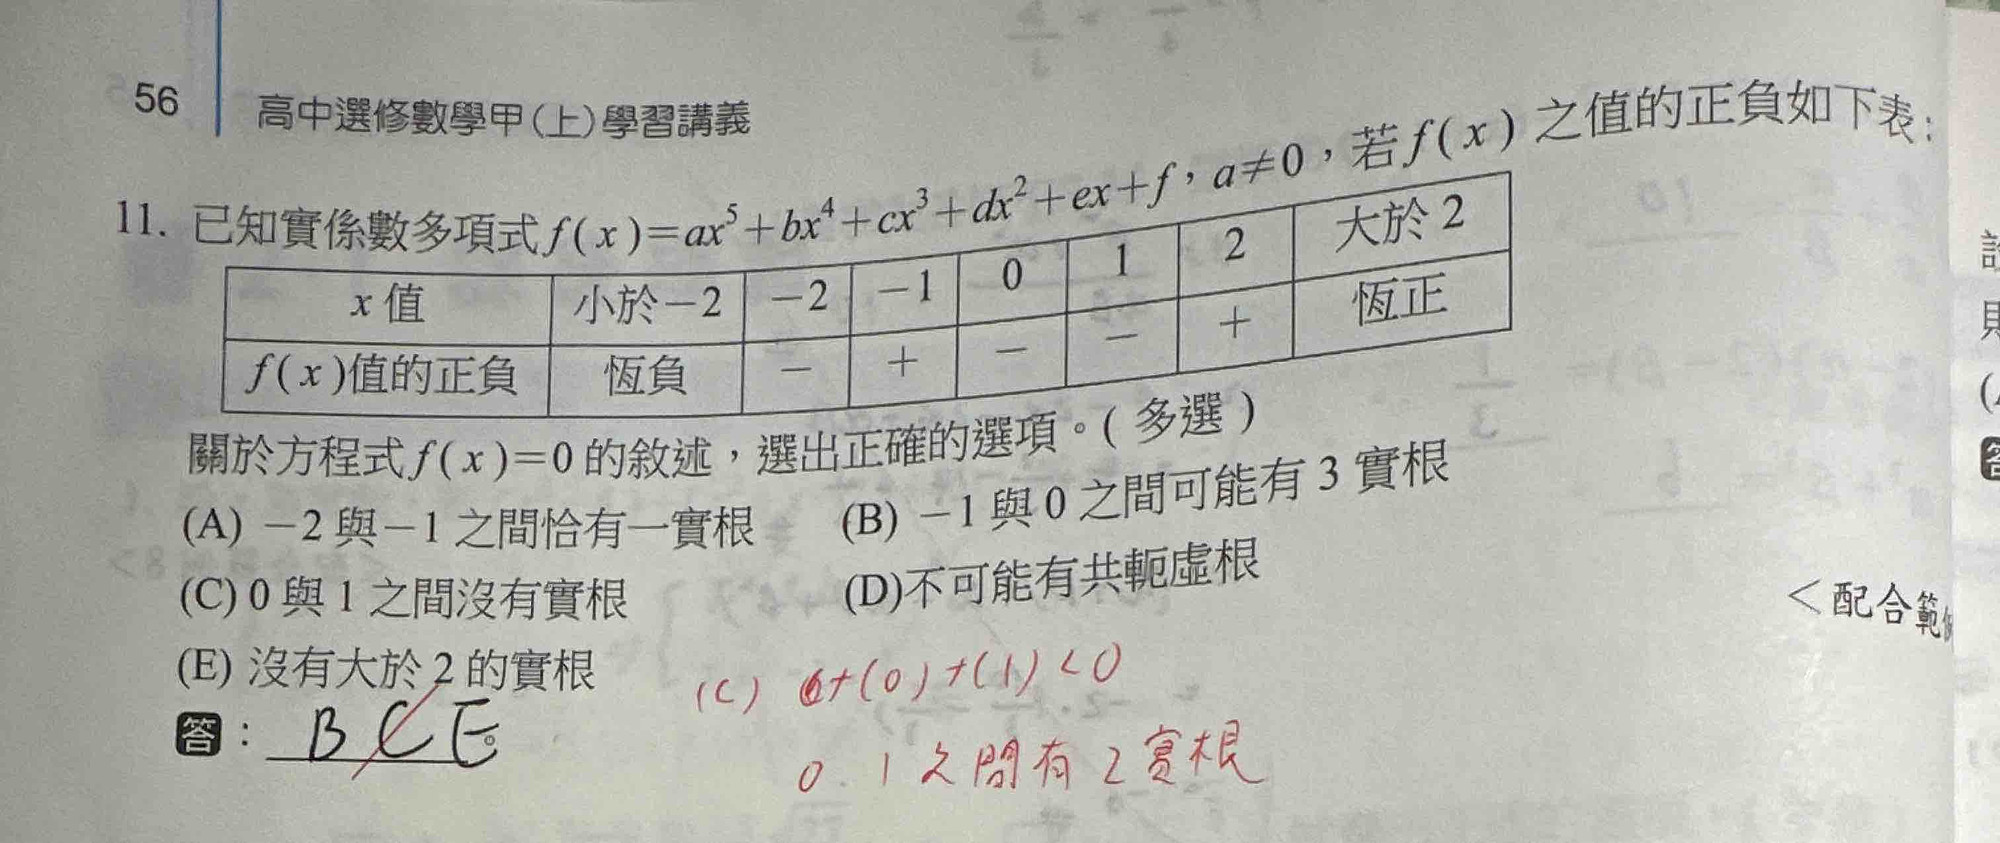 56 高中選修數學甲(上)學習講義
11. 已知實係數多項式 f(x)=ax⁵+bx⁴+cx³+dx²+ex+f，a≠0，若 f(x) 之值的正負如下表：
x 值 小於－2 －2 －1 0 1 2 大於 2
f(x)值的正負 恆負 － ＋ － － ＋ 恆正
關於方程式 f(x)=0 的敘述，選出正確的選項。(多選)
(A) －2 與－1 之間恰有一實根 (B) －1 與 0 之間可能有 3 實根
(C) 0 與 1 之間沒有實根 (D)不可能有共軛虛根
(E) 沒有大於 2 的實根
<配合範
答： B C E
(C) f(0)f(1)<0
0.1之間有2實根